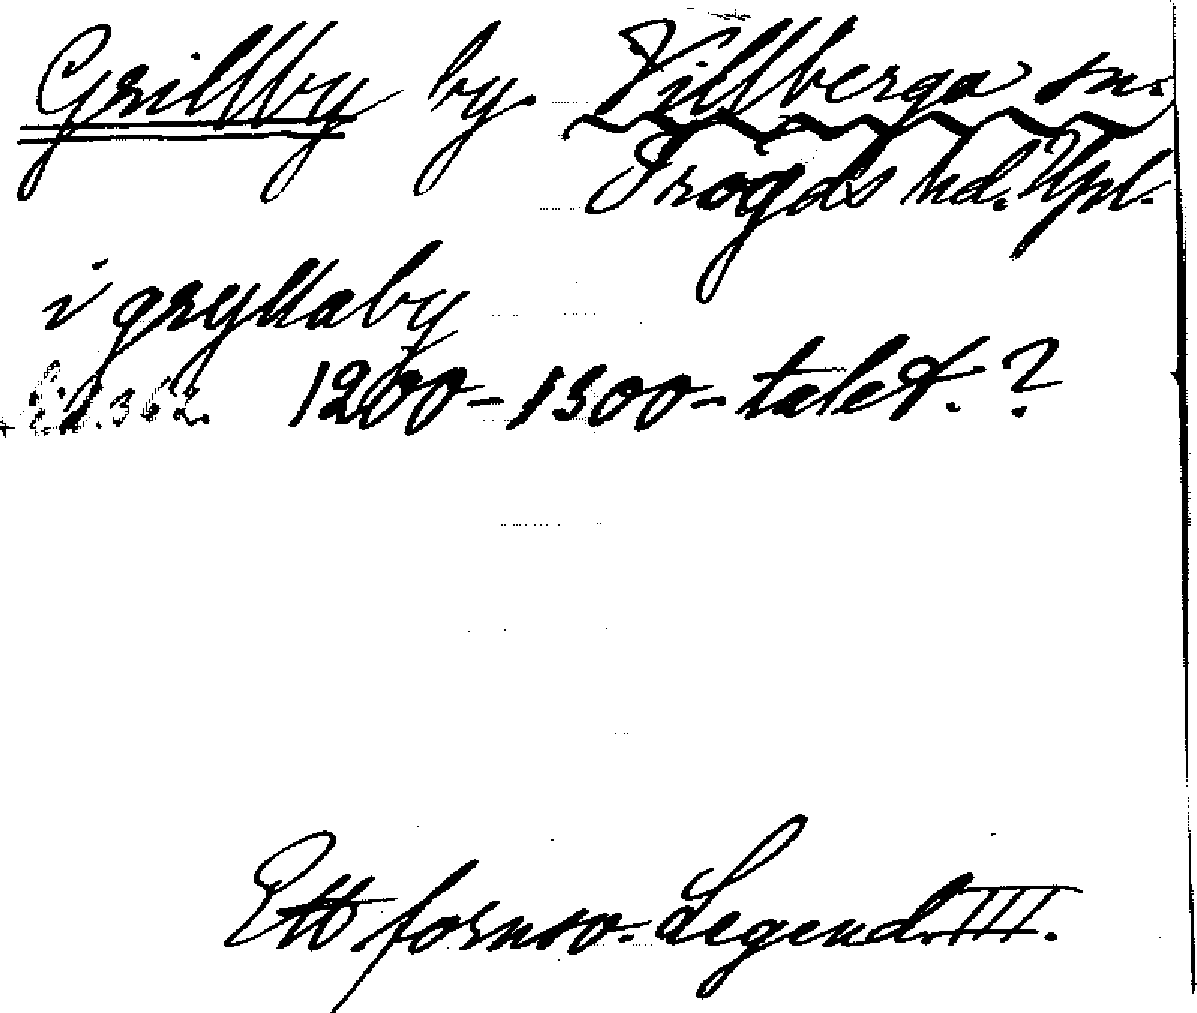 Grillby by. Villberga sn.
Trogds hd. Upl.
i gryllaby
sid. 362. 1200-1300-talet. ?
Ett fornsv. Legend. III.